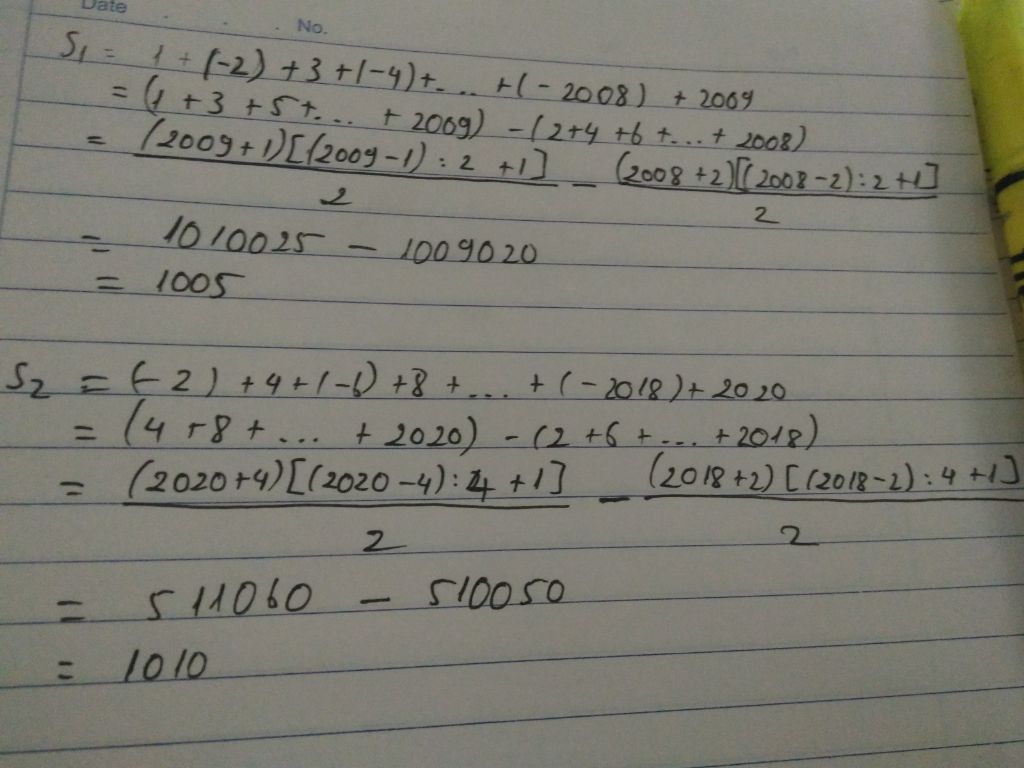 Date
No.
S₁ = 1 + (-2) + 3 + (-4) + ... + (-2008) + 2009
= (1 + 3 + 5 + ... + 2009) - (2+4+6+...+2008)
= (2009+1)[(2009-1):2 +1] / 2 - (2008+2)[(2008-2):2+1] / 2
= 1010025 - 1009020
= 1005
S₂ = (-2) + 4 + (-6) + 8 + ... + (-2018) + 2020
= (4 + 8 + ... + 2020) - (2+6+...+2018)
= (2020+4)[(2020-4):4 +1] / 2 - (2018+2)[(2018-2):4+1] / 2
= 511060 - 510050
= 1010